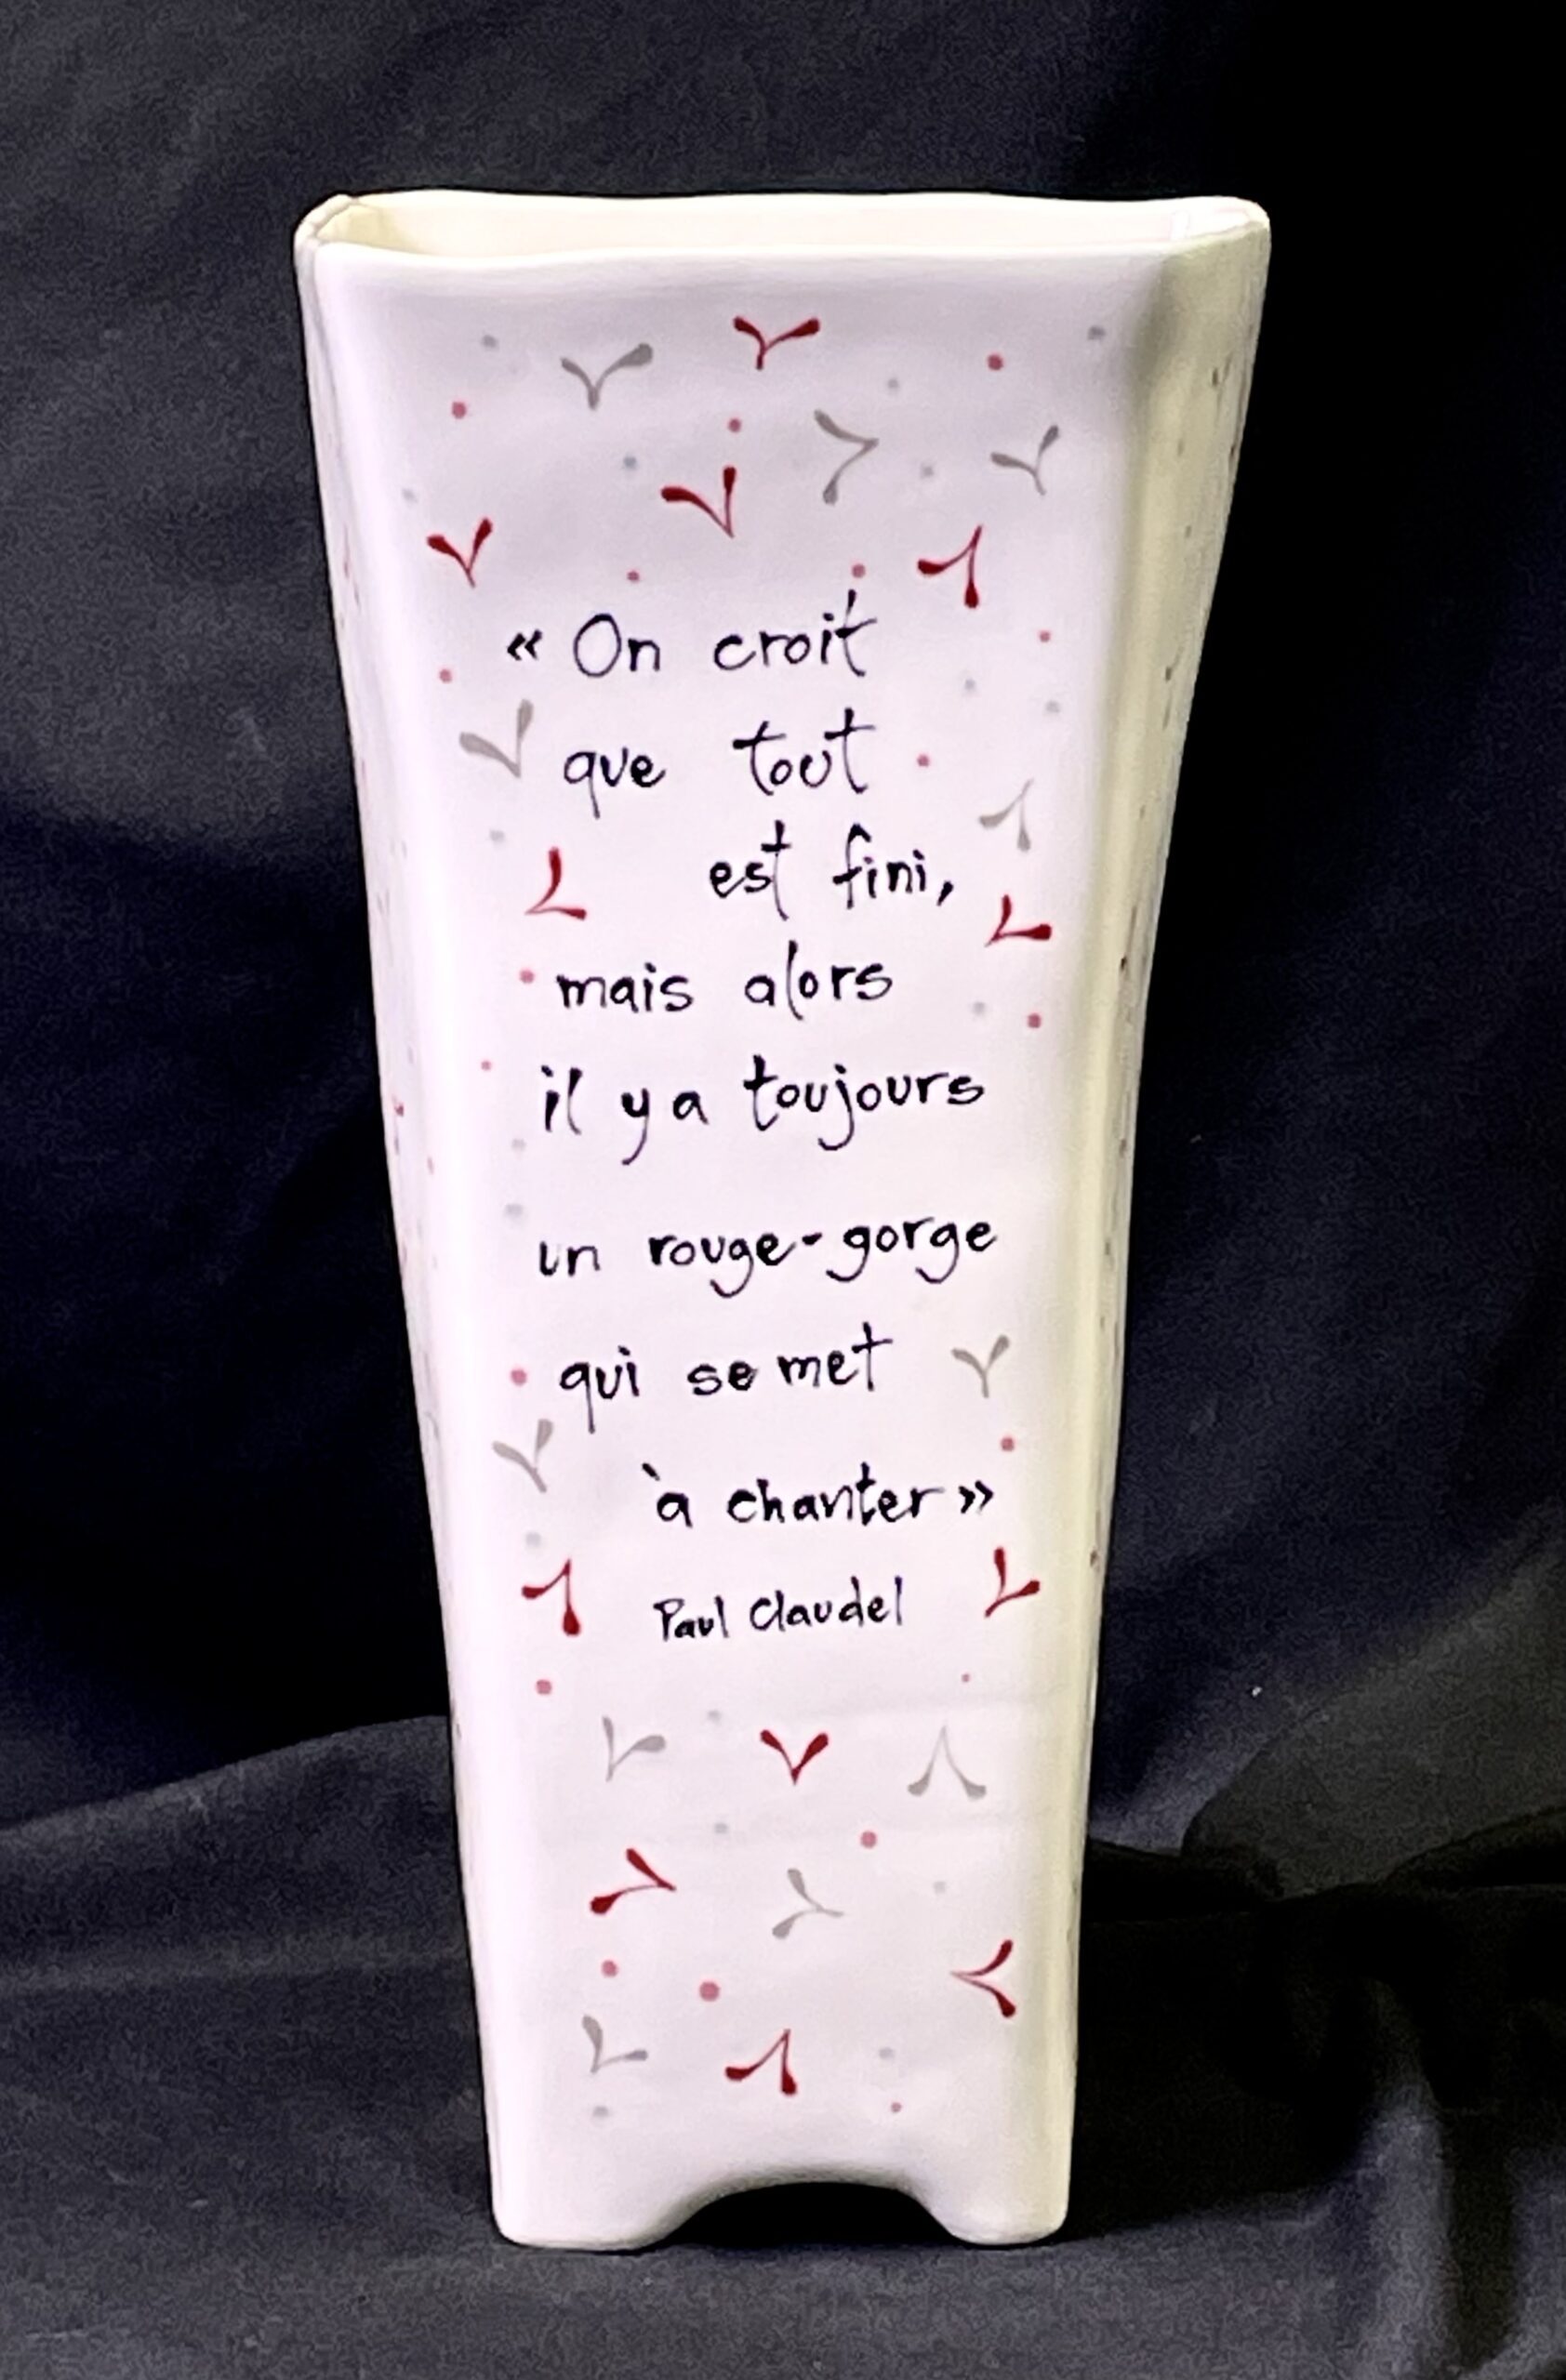 « On croit
que tout
est fini,
mais alors
il y a toujours
un rouge-gorge
qui se met
à chanter »
Paul Claudel